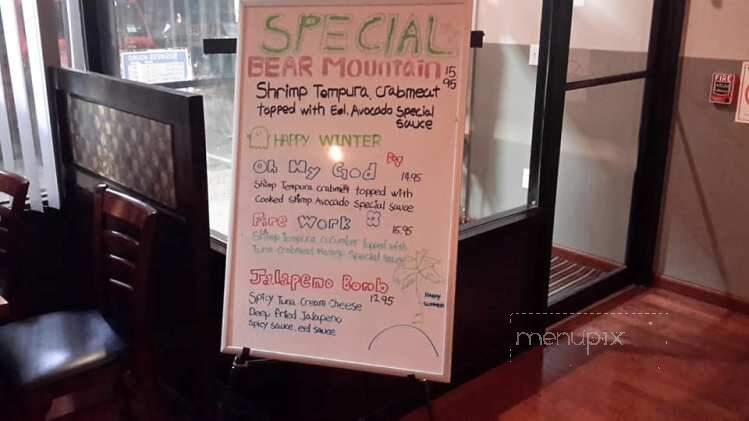 SPECIAL
BEAR MOUNTAIN 15 95
Shrimp Tempura, crabmeat
topped with Eel, Avocado Special
sauce
HAPPY WINTER
Oh My God 14.95
Shrimp Tempura crabmeat topped with
Cooked Shrimp Avocado Special sauce
Fire Work 15.95
Shrimp Tempura, cucumber topped with
Tuna crabmeat Mango Special sauce
Jalapeno Bomb 12.95
Spicy Tuna, Cream Cheese
Deep fried Jalapeno
spicy sauce, eel sauce
HAPPY
SUMMER
FIRE
menupix